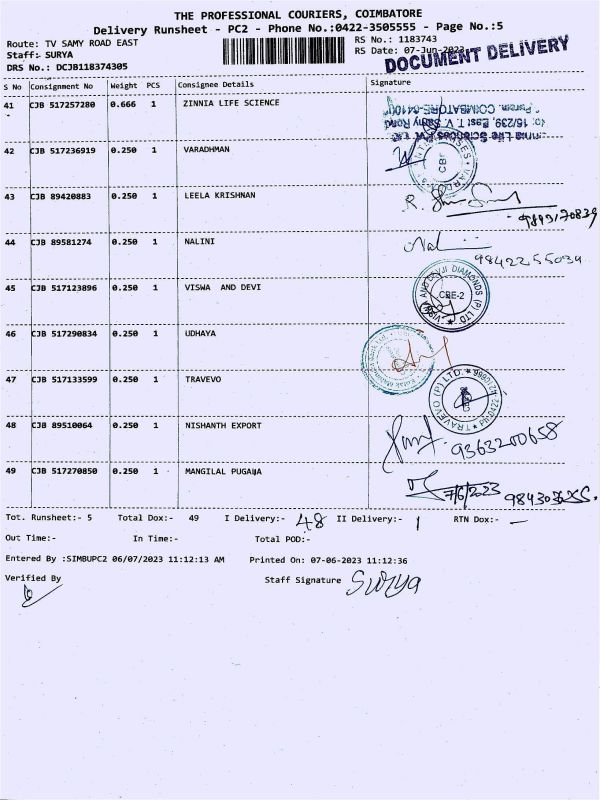 THE PROFESSIONAL COURIERS, COIMBATORE
Delivery Runsheet - PC2 - Phone No.:0422-3505555 - Page No.:5
Route: TV SAMY ROAD EAST
RS No.: 1183743
Staff: SURYA
RS Date: 07-Jun-2023
DRS No.: DCJB118374305
DOCUMENT DELIVERY
S No Consignment No Weight PCS Consignee Details Signature
41 CJB 517257280 0.666 1 ZINNIA LIFE SCIENCE
42 CJB 517236919 0.250 1 VARADHMAN
43 CJB 89420883 0.250 1 LEELA KRISHNAN
44 CJB 89581274 0.250 1 NALINI
9842255034
45 CJB 517123896 0.250 1 VISWA AND DEVI
VISWA AND DEVJI DIAMONDS (P) LTD.
CBE-2
46 CJB 517290834 0.250 1 UDHAYA
47 CJB 517133599 0.250 1 TRAVEVO
TRAVEVO (P) LTD.
48 CJB 89510064 0.250 1 NISHANTH EXPORT
9363200658
49 CJB 517270850 0.250 1 MANGILAL PUGALIA
7/6/2023
Tot. Runsheet:- 5 Total Dox:- 49 I Delivery:- 48 II Delivery:- 1 RTN Dox:- —
Out Time:- In Time:- Total POD:-
Entered By :SIMBUPC2 06/07/2023 11:12:13 AM Printed On: 07-06-2023 11:12:36
Verified By Staff Signature Surya